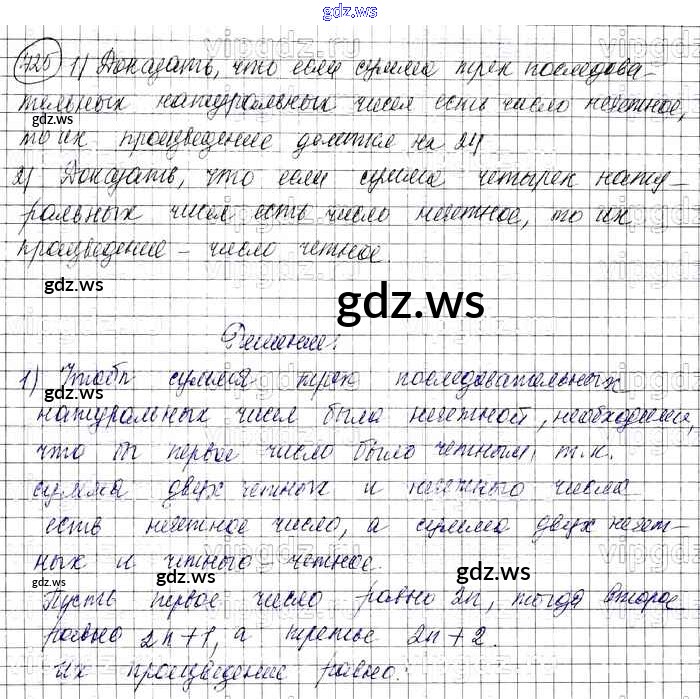 gdz.ws
725 1) Доказать, что если сумма трех последова-
тельных натуральных чисел есть число нечетное,
то их произведение делится на 24
2) Доказать, что если сумма четырех нату-
ральных чисел есть число нечетное, то их
произведение - число четное.
gdz.ws
gdz.ws
gdz.ws
Решение:
1) Чтобы сумма трех последовательных
gdz.ws
gdz.ws
натуральных чисел была нечетной, необходимо,
что бы первое число было четным, т.к.
сумма двух четных и нечетного числа
есть нечетное число, а сумма двух нечет-
ных и четного - четное.
gdz.ws
gdz.ws
Пусть первое число равно 2n, тогда второе
равно 2n+1, а третье 2n+2.
Их произведение равно:
gdz.ws
gdz.ws